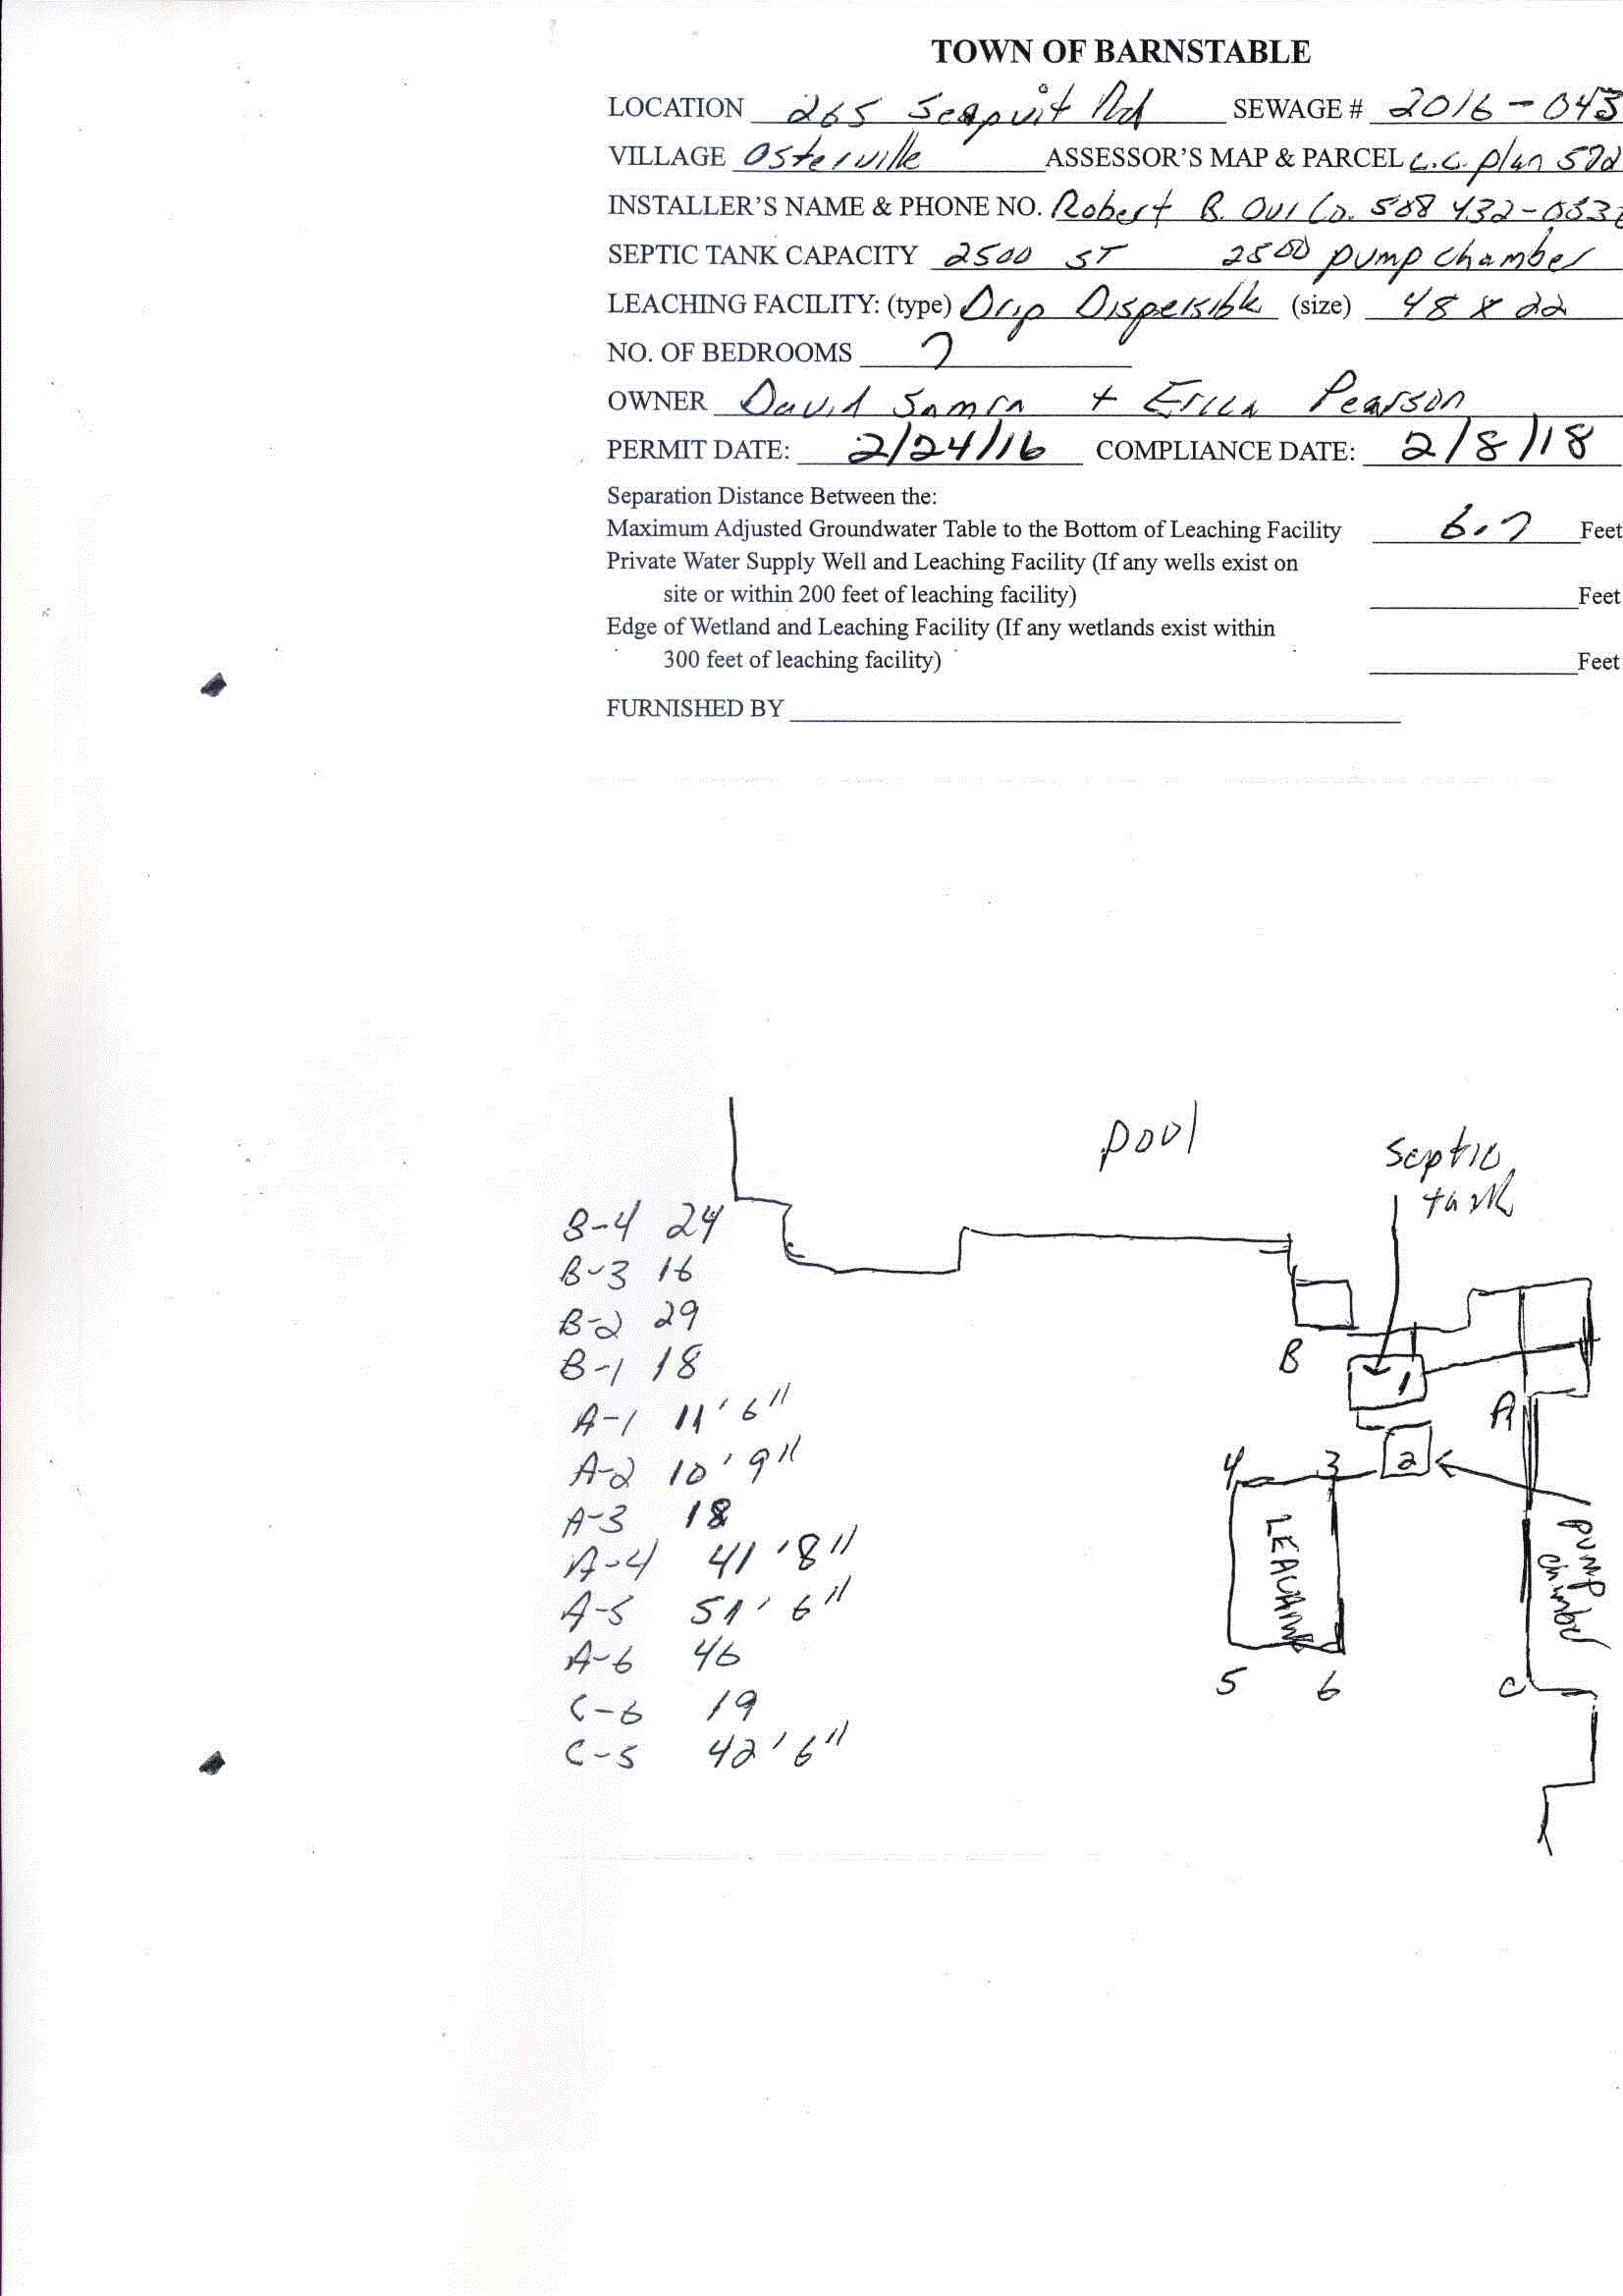 TOWN OF BARNSTABLE
LOCATION 265 Seapuit Rd SEWAGE # 2016-043
VILLAGE Osterville ASSESSOR'S MAP & PARCEL L.C. plan 572
INSTALLER'S NAME & PHONE NO. Robert B. Our Co. 508 432-053
SEPTIC TANK CAPACITY 2500 ST 2500 pump chamber
LEACHING FACILITY: (type) Drip Dispersible (size) 48 x 22
NO. OF BEDROOMS 7
OWNER David Samra + Erica Pearson
PERMIT DATE: 2/24/16 COMPLIANCE DATE: 2/8/18
Separation Distance Between the:
Maximum Adjusted Groundwater Table to the Bottom of Leaching Facility 6.7 Feet
Private Water Supply Well and Leaching Facility (If any wells exist on
site or within 200 feet of leaching facility) Feet
Edge of Wetland and Leaching Facility (If any wetlands exist within
300 feet of leaching facility) Feet
FURNISHED BY
pool
septic
tank
B-4 24
B-3 16
B-2 29
B-1 18
A-1 11'6"
A-2 10'9"
A-3 18
A-4 41'8"
A-5 51'6"
A-6 46
C-6 19
C-5 42'6"
B
1
A
4 3 2
LEACHING
pump
chamber
5 6 C